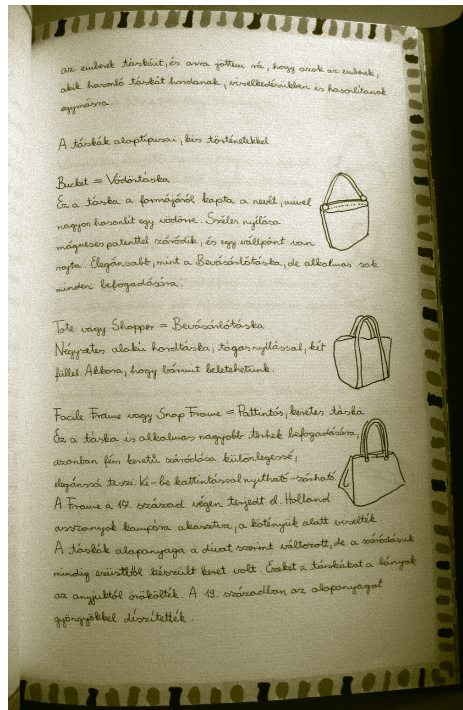 az emberek táskáit, és arra jöttem rá, hogy azok az emberek,
akik hasonló táskát hordanak, viselkedésükben is hasonlítanak
egymásra.
A táskák alaptípusai, kis történetekkel
Bucket = Vödörtáska
Ez a táska a formájáról kapta a nevét, mivel
nagyon hasonlít egy vödörre. Széles nyílása
mágneses patenttel záródik, és egy vállpánt van
rajta. Elegánsabb, mint a Bevásárlótáska, de alkalmas sok
minden befogadására.
Tote vagy Shopper = Bevásárlótáska
Négyzetes alakú hordtáska, tágas nyílással, két
füllel. Akkora, hogy bármit beletehetünk.
Facile Frame vagy Snap Frame = Pattintós, keretes táska
Ez a táska is alkalmas nagyobb terhek befogadására,
azonban fém keretű záródása különlegessé,
elegánssá teszi. Ki-be kattintással nyitható-zárható.
A Frame a 17. század végen terjedt el. Holland
asszonyok kampóra akasztva, a kötényük alatt viselték
A táskák alapanyaga a divat szerint változott, de a záródásuk
mindig ezüstből készült keret volt. Ezeket a táskákat a lányok
az anyjuktól örökölték. A 19. században az alapanyagot
gyöngyökkel díszítették.